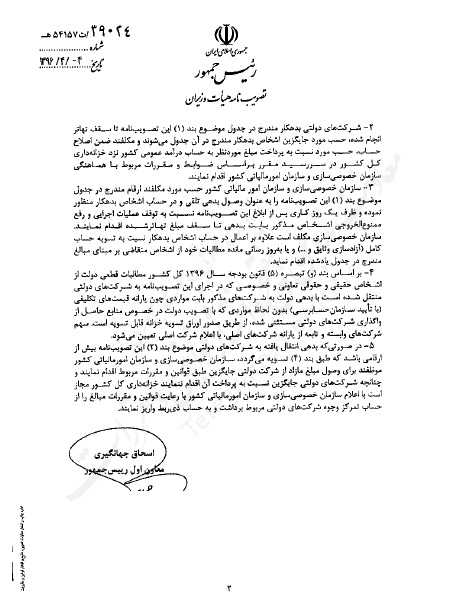 ۳۹۰۲۴/ت۵۴۱۵۷هـ
شماره
تاریخ ۱۳۹۶/۴/۰۴
جمهوری اسلامی ایران
رئیس جمهور
تصویب نامه هیأت وزیران
۲- شرکت‌های دولتی بدهکار مندرج در جدول موضوع بند (۱) این تصویب‌نامه تا سقف تهاتر
انجام شده، حسب مورد جایگزین اشخاص بدهکار مندرج در آن جدول می‌شوند و مکلفند ضمن اصلاح
حساب، حسب مورد نسبت به پرداخت مبلغ موردنظر به حساب درآمد عمومی کشور نزد خزانه‌داری
کل کشور در سررسید مقرر براساس ضوابط و مقررات مربوط با هماهنگی
سازمان خصوصی‌سازی و سازمان امورمالیاتی کشور اقدام نمایند.
۳- سازمان خصوصی‌سازی و سازمان امور مالیاتی کشور حسب مورد مکلفند ارقام مندرج در جدول
موضوع بند (۱) این تصویب‌نامه را به عنوان وصول بدهی تلقی و در حساب اشخاص بدهکار منظور
نموده و ظرف یک روز کاری پس از ابلاغ این تصویب‌نامه نسبت به توقف عملیات اجرایی و رفع
ممنوع‌الخروجی اشخاص مذکور بابت بدهی تا سقف مبلغ تهاترشده اقدام نمایند.
سازمان خصوصی‌سازی مکلف است علاوه بر اعمال در حساب اشخاص بدهکار نسبت به تسویه حساب
کامل (آزادسازی وثایق و ...) و یا به‌روز رسانی مانده مطالبات خود از اشخاص متقاضی بر مبنای مبالغ
مندرج در جدول یادشده اقدام نماید.
۴- بر اساس بند (و) تبصره (۵) قانون بودجه سال ۱۳۹۶ کل کشور مطالبات قطعی دولت از
اشخاص حقیقی و حقوقی تعاونی و خصوصی که در اجرای این تصویب‌نامه به شرکت‌های دولتی
منتقل شده است با بدهی دولت به شرکت‌های مذکور بابت مواردی چون یارانه قیمت‌های تکلیفی
(با تأیید سازمان حسابرسی) بدون لحاظ مواردی که با تصویب دولت در خصوص منابع حاصل از
واگذاری شرکت‌های دولتی مستثنی شده، از طریق صدور اوراق تسویه خزانه قابل تسویه است. سهم
شرکت‌های وابسته و تابعه از یارانه شرکت‌های اصلی، با اعلام شرکت اصلی تعیین می‌شود.
۵- در صورتی‌که بدهی انتقال یافته به شرکت‌های دولتی موضوع بند (۲) این تصویب‌نامه بیش از
ارقامی باشد که طبق بند (۴) تسویه می‌گردد، سازمان خصوصی‌سازی و سازمان امورمالیاتی کشور
موظفند برای وصول مبلغ مازاد از شرکت دولتی جایگزین طبق قوانین و مقررات مربوط اقدام نمایند و
چنانچه شرکت‌های دولتی جایگزین نسبت به پرداخت آن اقدام ننمایند خزانه‌داری کل کشور مجاز
است با اعلام سازمان خصوصی‌سازی و سازمان امورمالیاتی کشور با رعایت قوانین و مقررات مبالغ را از
حساب تمرکز وجوه شرکت‌های دولتی مربوط برداشت و به حساب ذی‌ربط واریز نمایند.
اسحاق جهانگیری
معاون اول رییس‌جمهور
۲